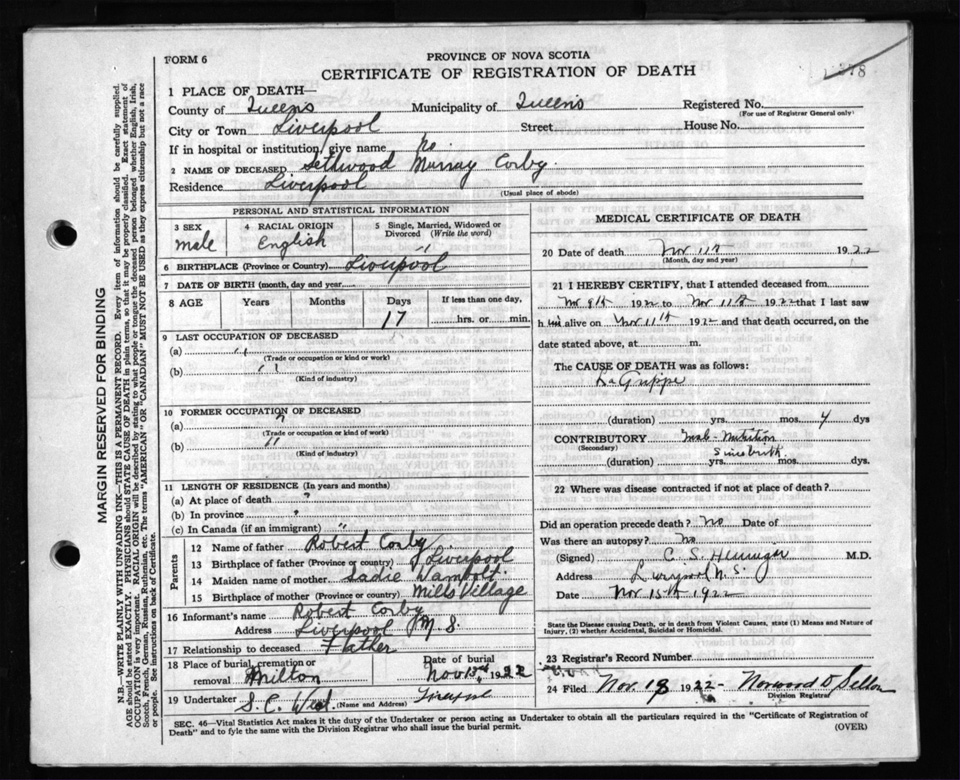 FORM 6
PROVINCE OF NOVA SCOTIA
CERTIFICATE OF REGISTRATION OF DEATH
378
1 PLACE OF DEATH—
County of Queens Municipality of Queens Registered No.
(For use of Registrar General only)
City or Town Liverpool Street House No.
If in hospital or institution, give name no
2 NAME OF DECEASED Sethwood Murray Corby
Residence Liverpool
(Usual place of abode)
PERSONAL AND STATISTICAL INFORMATION
3 SEX 4 RACIAL ORIGIN 5 Single, Married, Widowed or Divorced (Write the word)
male English "
6 BIRTHPLACE (Province or Country) Liverpool
7 DATE OF BIRTH (month, day and year)
8 AGE Years Months Days If less than one day,
17 hrs. or min.
9 LAST OCCUPATION OF DECEASED
(a) "
(Trade or occupation or kind or work)
(b) "
(Kind of industry)
10 FORMER OCCUPATION OF DECEASED
(a) "
(Trade or occupation or kind of work)
(b) "
(Kind of industry)
11 LENGTH OF RESIDENCE (In years and months)
(a) At place of death "
(b) In province "
(c) In Canada (if an immigrant) "
Parents
12 Name of father Robert Corby
13 Birthplace of father (Province or country) Liverpool
14 Maiden name of mother Sadie Wambolt
15 Birthplace of mother (Province or country) Mills Village
16 Informant's name Robert Corby
Address Liverpool N.S.
17 Relationship to deceased Father
18 Place of burial, cremation or removal Milton Date of burial Nov 13th, 1922
19 Undertaker S. C. West (Name and Address) Liverpool
MEDICAL CERTIFICATE OF DEATH
20 Date of death Nov 11th 1922
(Month, day and year)
21 I HEREBY CERTIFY, that I attended deceased from
Nov 8th 1922 to Nov 11th 1922 that I last saw
h im alive on Nov 11th 1922 and that death occurred, on the
date stated above, at m.
The CAUSE OF DEATH was as follows:
La Grippe
(duration) yrs. mos. 4 dys
CONTRIBUTORY Mal-Nutrition
(Secondary) Since birth
(duration) yrs. mos. dys.
22 Where was disease contracted if not at place of death?
Did an operation precede death? No Date of
Was there an autopsy? No
(Signed) C. S. M.D.
Address Liverpool N.S.
Date Nov 15th 1922
State the Disease causing Death, or in death from Violent Causes, state (1) Means and Nature of Injury, (2) whether Accidental, Suicidal or Homicidal.
23 Registrar's Record Number
24 Filed Nov. 18 1922 Norwood D.
Division Registrar
SEC. 46—Vital Statistics Act makes it the duty of the Undertaker or person acting as Undertaker to obtain all the particulars required in the "Certificate of Registration of
Death" and to fyle the same with the Division Registrar who shall issue the burial permit.
(OVER)
MARGIN RESERVED FOR BINDING
N.B.—WRITE PLAINLY WITH UNFADING INK—THIS IS A PERMANENT RECORD. Every item of information should be carefully supplied.
AGE should be stated EXACTLY. PHYSICIANS should STATE CAUSE OF DEATH in plain terms, so that it may be properly classified. Exact statement of
OCCUPATION is very important. RACIAL ORIGIN will be described by stating to what people or tongue the deceased person belonged whether English, Irish,
Scotch, French, German, Russian, Ruthenian, etc. The terms "AMERICAN" OR "CANADIAN" MUST NOT BE USED as they express citizenship but not a race
or people. See instructions on back of Certificate.